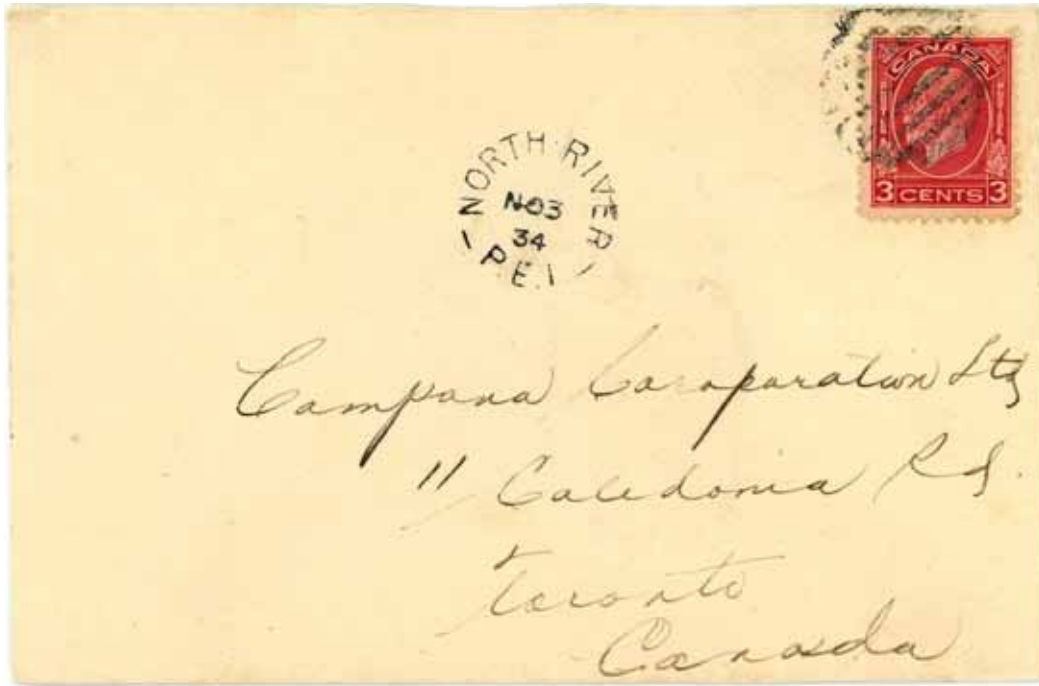 CANADA
3 CENTS 3
NORTH RIVER
NO 3
34
P.E.I
Campana Coroparation Ltd
11 Caledonia Rd.
Toronto
Canada